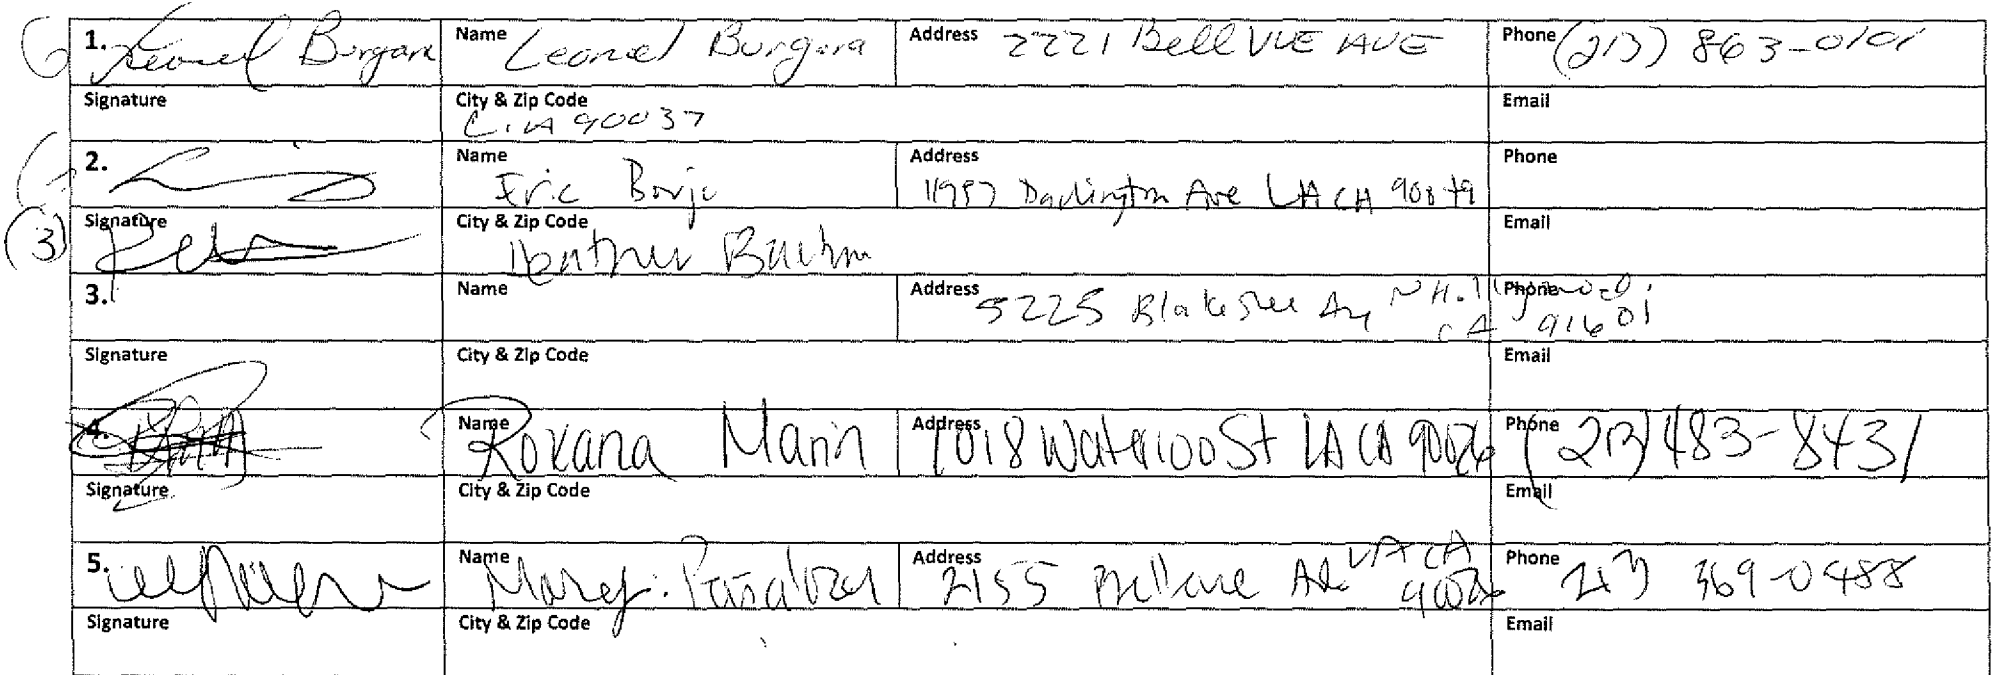 1. Leonel Burgara Name Leonel Burgara Address 2221 BellVUE AVE Phone (213) 863-0101
Signature City & Zip Code Email
L.A 90037
2. Name Eric Address 11957 Darlington Ave LA CA Phone
Signature City & Zip Code Email
(3) Heather
3. Name Address 5225 Blakeslee Av N H. CA 91601 Phone
Signature City & Zip Code Email
4. Name Roxana Marin Address 1018 Waterloo St LA CA 90026 Phone (213) 483-8431
Signature City & Zip Code Email
5. Name Address 2155 Bellevue Ave LA CA 90026 Phone 213 369-0488
Signature City & Zip Code Email